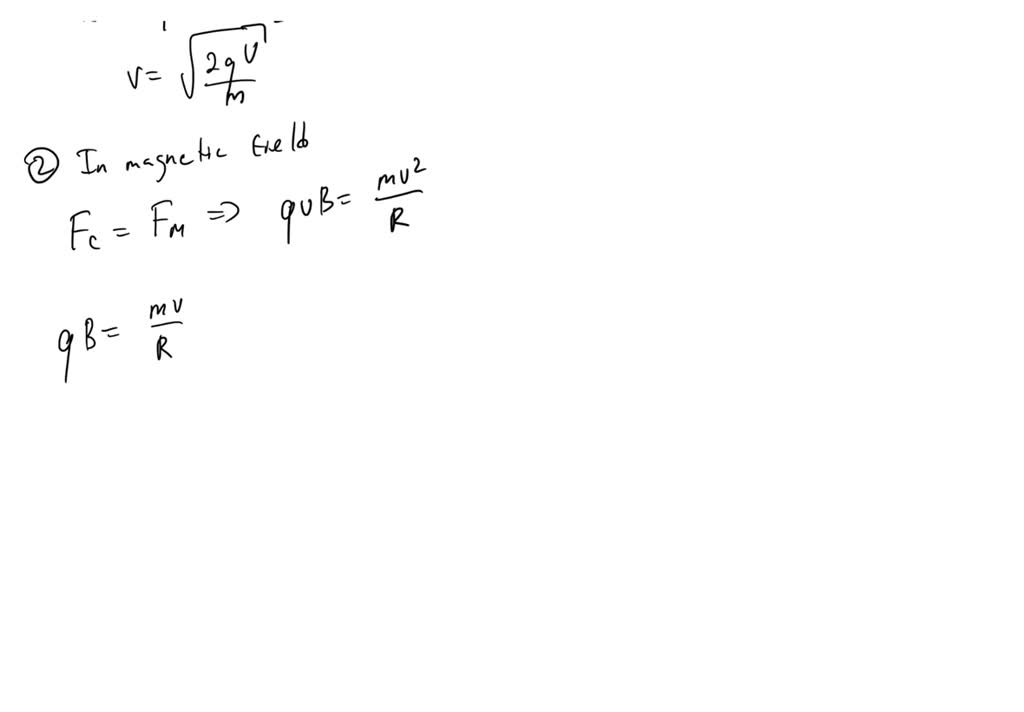 v = √(2qV/m)
② In magnetic field
F_c = F_M => qvB = mv²/R
qB = mv/R